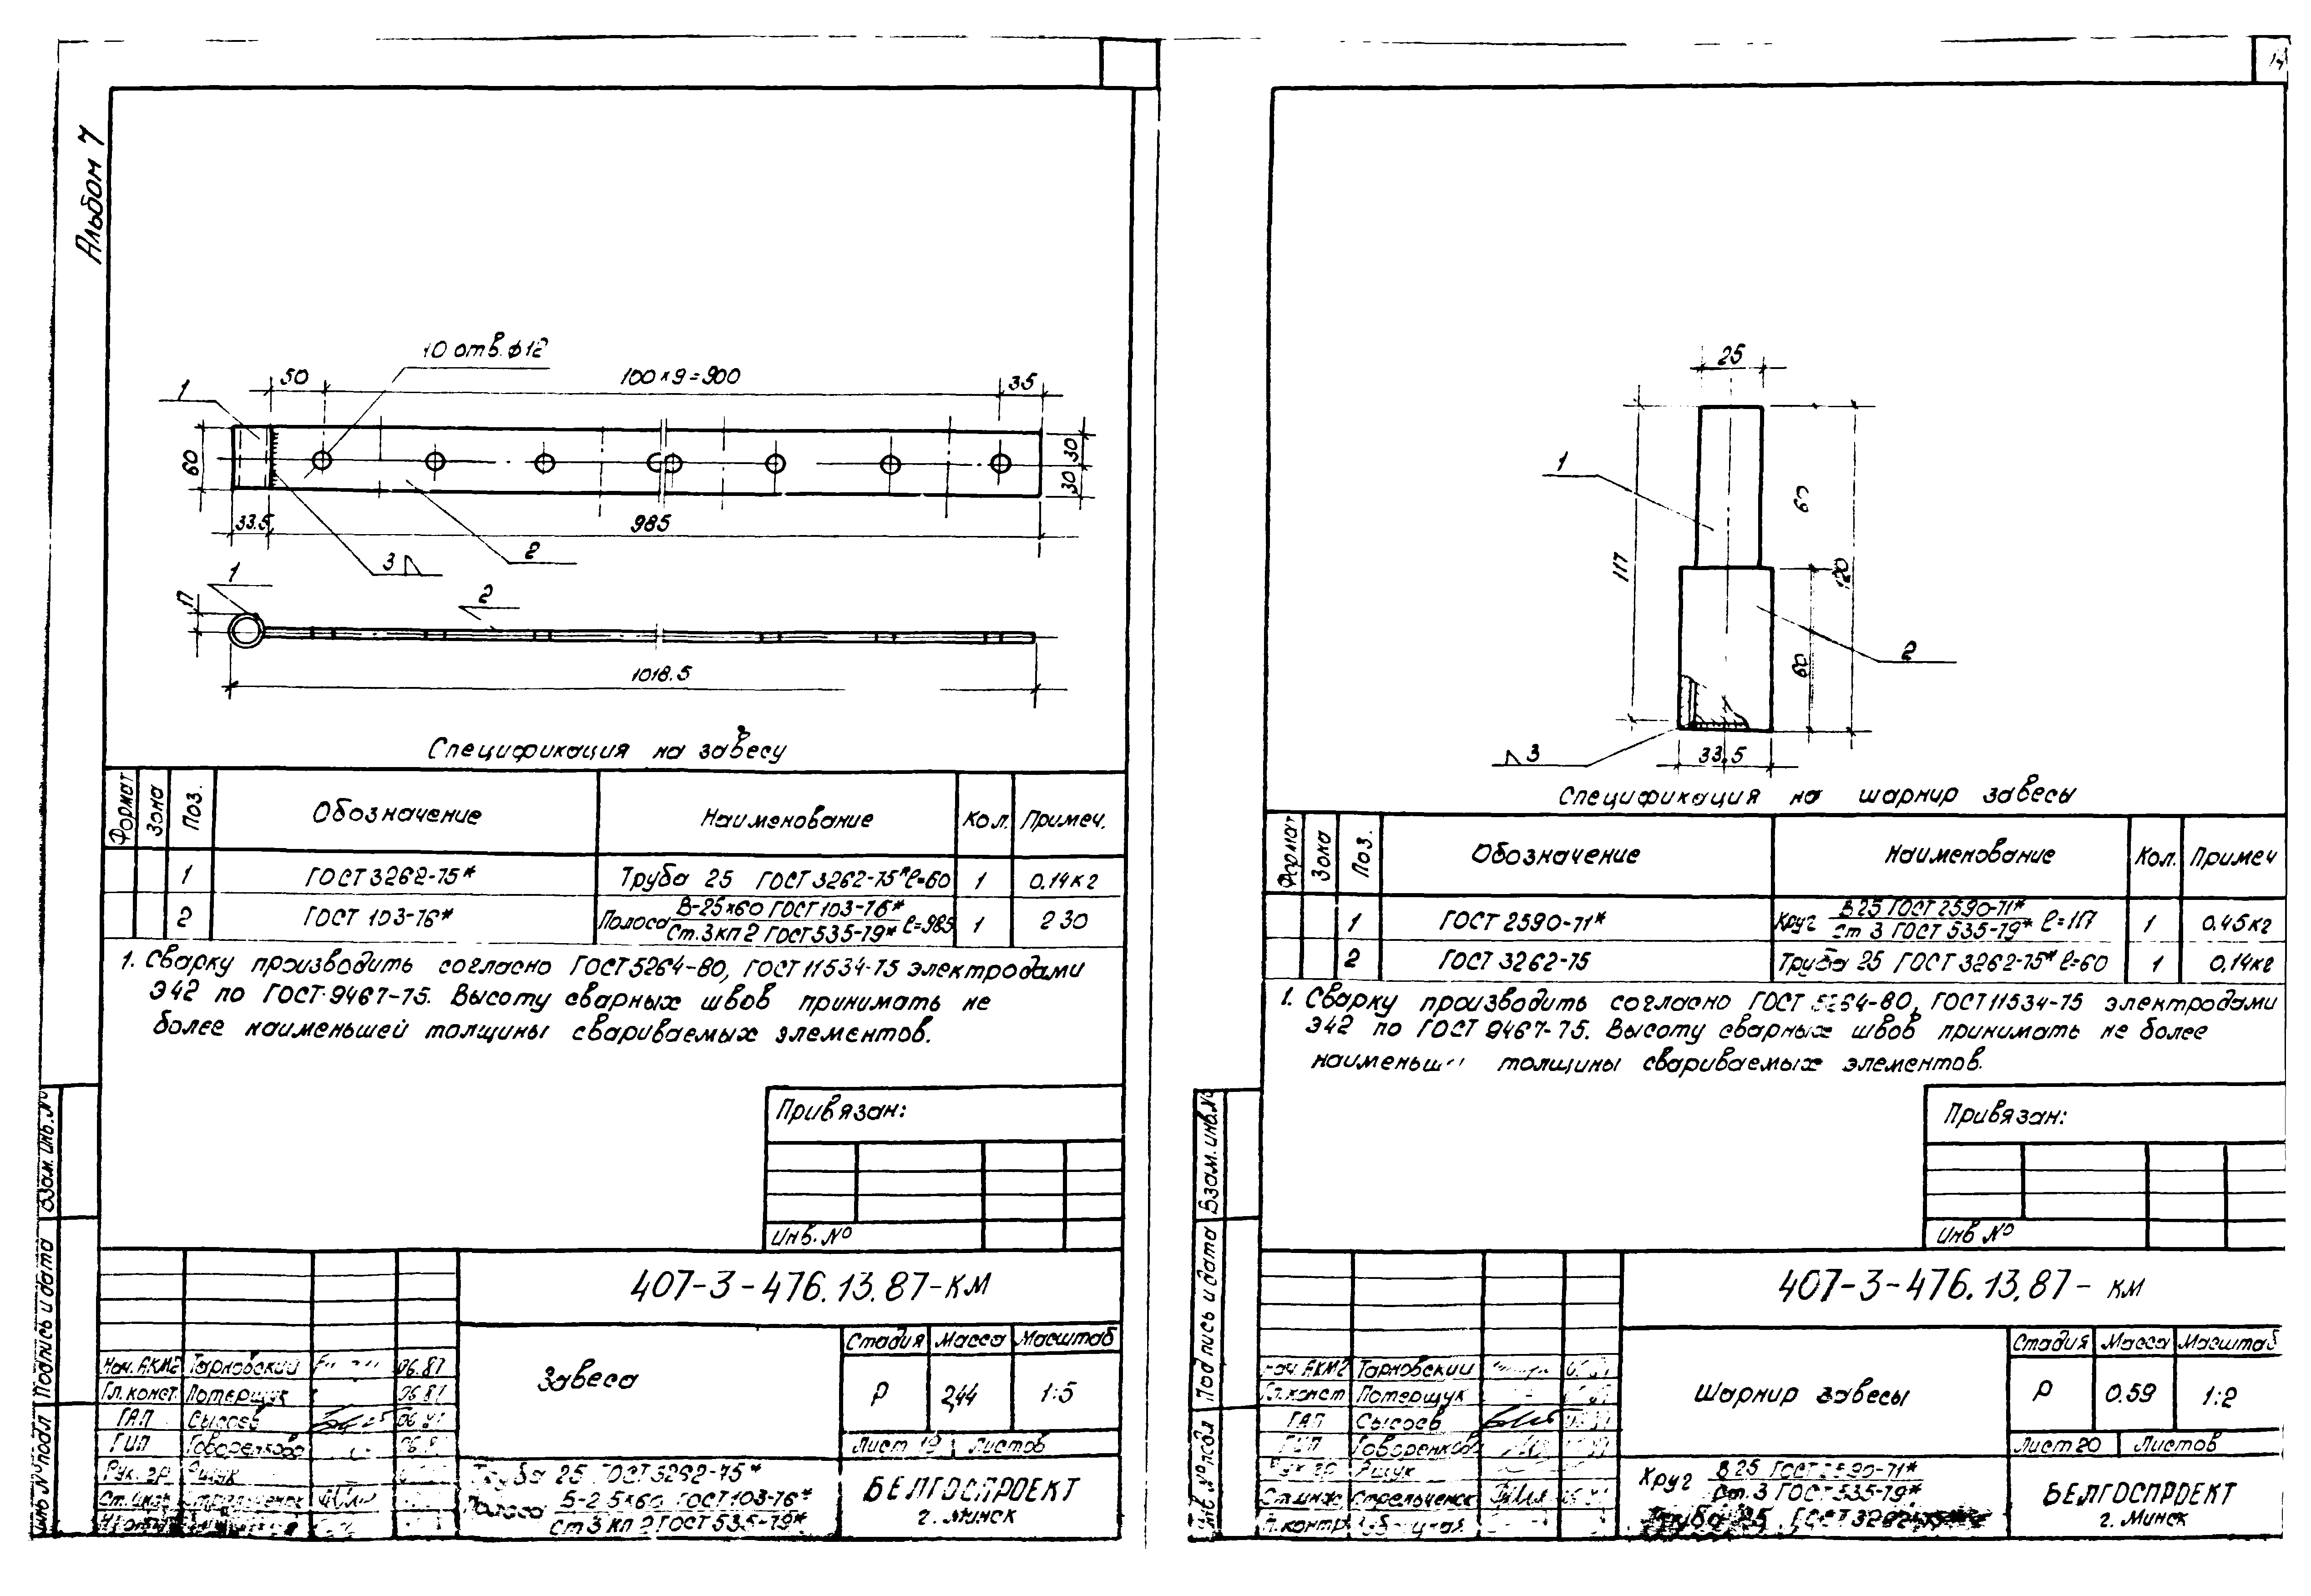 Альбом 7
10 отв. ф12
1
50
100×9=900
35
60
30
30
33.5
985
3
2
1
17
2
1018.5
Спецификация на завесу
Формат Зона Поз. Обозначение Наименование Кол. Примеч.
1 ГОСТ 3262-75* Труба 25 ГОСТ 3262-75* ℓ=60 1 0,14кг
2 ГОСТ 103-76* Полоса В-25×60 ГОСТ 103-76* / Ст.3кп2 ГОСТ 535-79* ℓ=985 1 2 30
1. Сварку производить согласно ГОСТ 5264-80, ГОСТ 11534-75 электродами
Э42 по ГОСТ 9467-75. Высоту сварных швов принимать не
более наименьшей толщины свариваемых элементов.
Привязан:
Инв. №
407-3-476.13.87-КМ
Завеса
Стадия Масса Масштаб
Р 2,44 1:5
Лист 19 Листов
Нач. АКМ2 Тарновский 06.87
Гл. конст. Потерщук 06.87
ГАП Сысоев
ГИП
Рук. гр. Ящук
Ст. инж.
Труба 25 ГОСТ 3262-75*
Полоса Б-2.5×60 ГОСТ 103-76* / Ст3кп2 ГОСТ 535-79*
БЕЛГОСПРОЕКТ
г. Минск
Инв № подл Подпись и дата Взам. инв. №
14
25
1
117
60
120
60
2
3
33.5
Спецификация на шарнир завесы
Формат Зона Поз. Обозначение Наименование Кол. Примеч
1 ГОСТ 2590-71* Круг В25 ГОСТ 2590-71* / Ст 3 ГОСТ 535-79* ℓ=117 1 0.45кг
2 ГОСТ 3262-75 Труба 25 ГОСТ 3262-75* ℓ=60 1 0,14кг
1. Сварку производить согласно ГОСТ 5264-80, ГОСТ 11534-75 электродами
Э42 по ГОСТ 9467-75. Высоту сварных швов принимать не более
толщины свариваемых элементов.
Привязан:
Инв №
407-3-476.13.87-КМ
Шарнир завесы
Стадия Масса Масштаб
Р 0.59 1:2
Лист 20 Листов
Нач. АКМ2 Тарновский
Гл. конст Потерщук
ГАП Сысоев
ГИП Говоренкова
Рук. гр Ящук
Ст. инж Стрельченок
Н. контр
Круг В25 ГОСТ 2590-71* / Ст. 3 ГОСТ 535-79*
Труба 25 ГОСТ 3262-75*
БЕЛГОСПРОЕКТ
г. Минск
Инв № подл Подпись и дата Взам. инв. №